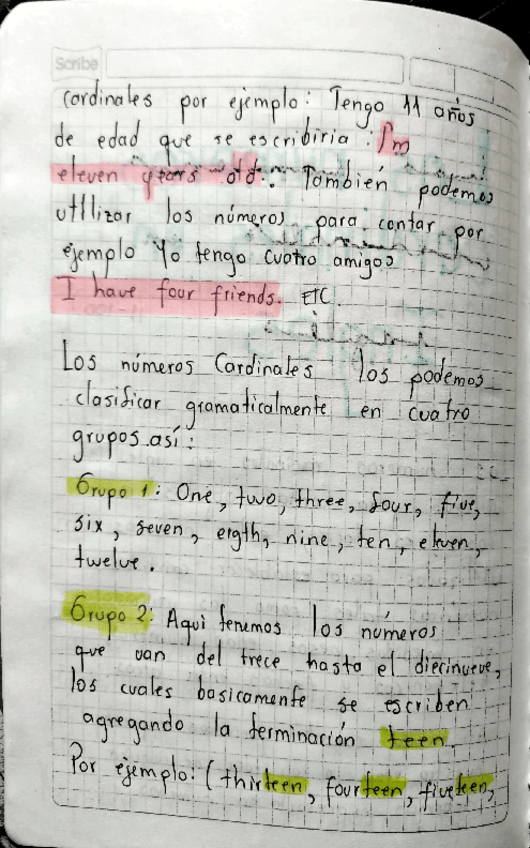 Scribe
Cardinales por ejemplo: Tengo 11 años
de edad que se escribiria : I'm
eleven years old. También podemos
utilizar los números para contar por
ejemplo Yo tengo cuatro amigos
I have four friends. ETC.
Los números Cardinales los podemos
clasificar gramaticalmente en cuatro
grupos así:
Grupo 1: One, two, three, four, five,
six, seven, eigth, nine, ten, eleven,
twelve.
Grupo 2: Aquí tenemos los números
que van del trece hasta el diecinueve,
los cuales basicamente se escriben
agregando la terminación teen.
Por ejemplo: (thirteen, fourteen, fiveteen,